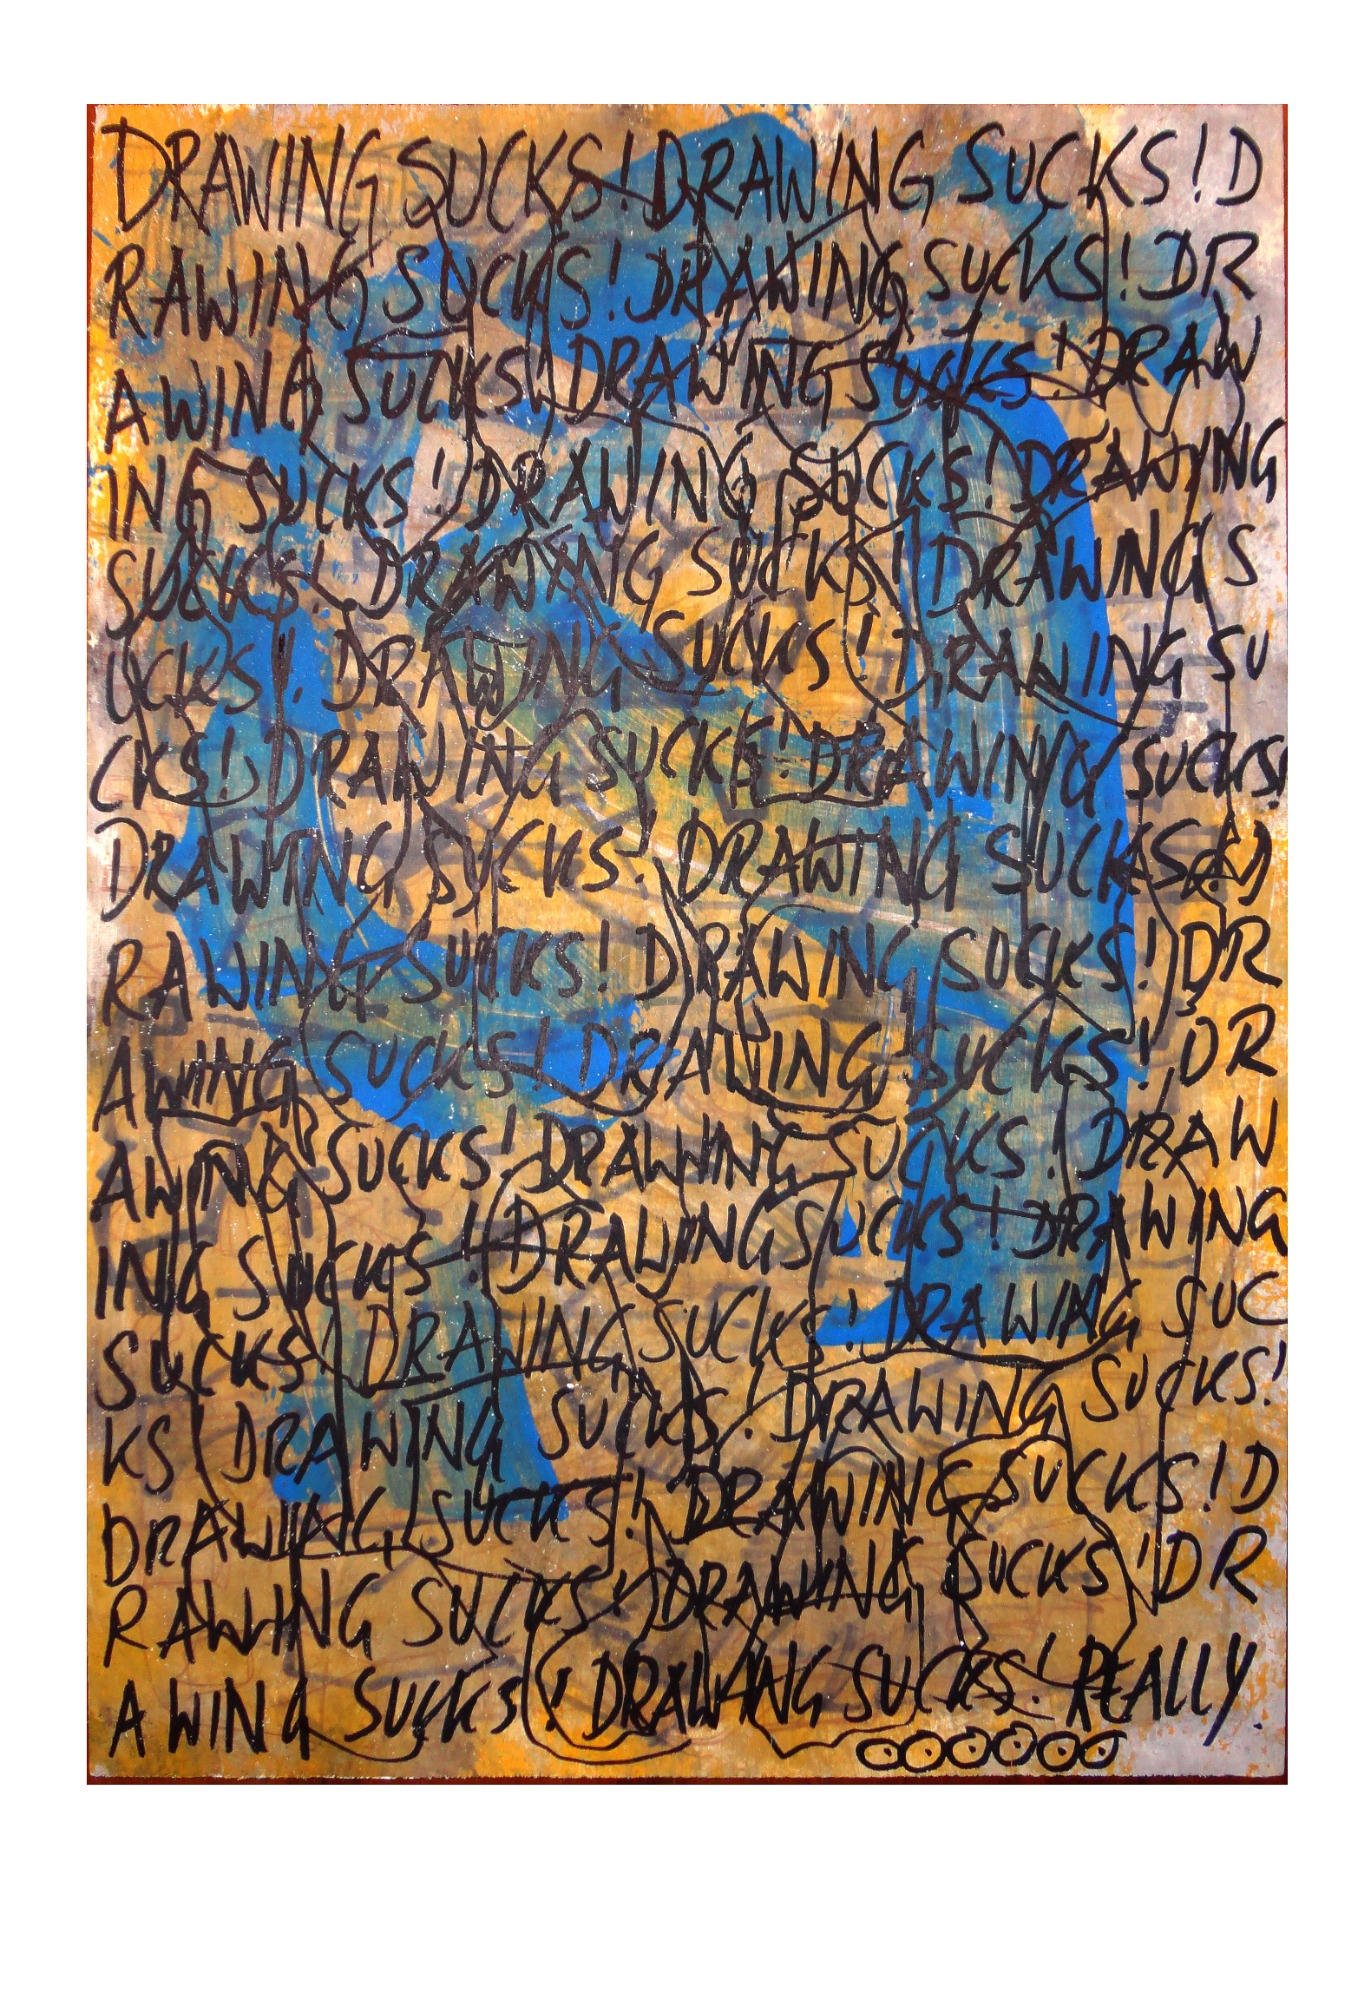 DRAWING SUCKS! DRAWING SUCKS! D
RAWING SUCKS! DRAWING SUCKS! DR
AWING SUCKS! DRAWING SUCKS! DRAW
ING SUCKS! DRAWING SUCKS! DRAWING
SUCKS! DRAWING SUCKS! DRAWING S
UCKS! DRAWING SUCKS! DRAWING SU
CKS! DRAWING SUCKS! DRAWING SUCKS!
DRAWING SUCKS! DRAWING SUCKS! D
RAWING SUCKS! DRAWING SUCKS! DR
AWING SUCKS! DRAWING SUCKS! DR
AWING SUCKS! DRAWING SUCKS! DRAW
ING SUCKS! DRAWING SUCKS! DRAWING
SUCKS! DRAWING SUCKS! DRAWING SUC
KS! DRAWING SUCKS! DRAWING SUCKS!
DRAWING SUCKS! DRAWING SUCKS! D
RAWING SUCKS! DRAWING SUCKS! DR
AWING SUCKS! DRAWING SUCKS! REALLY.